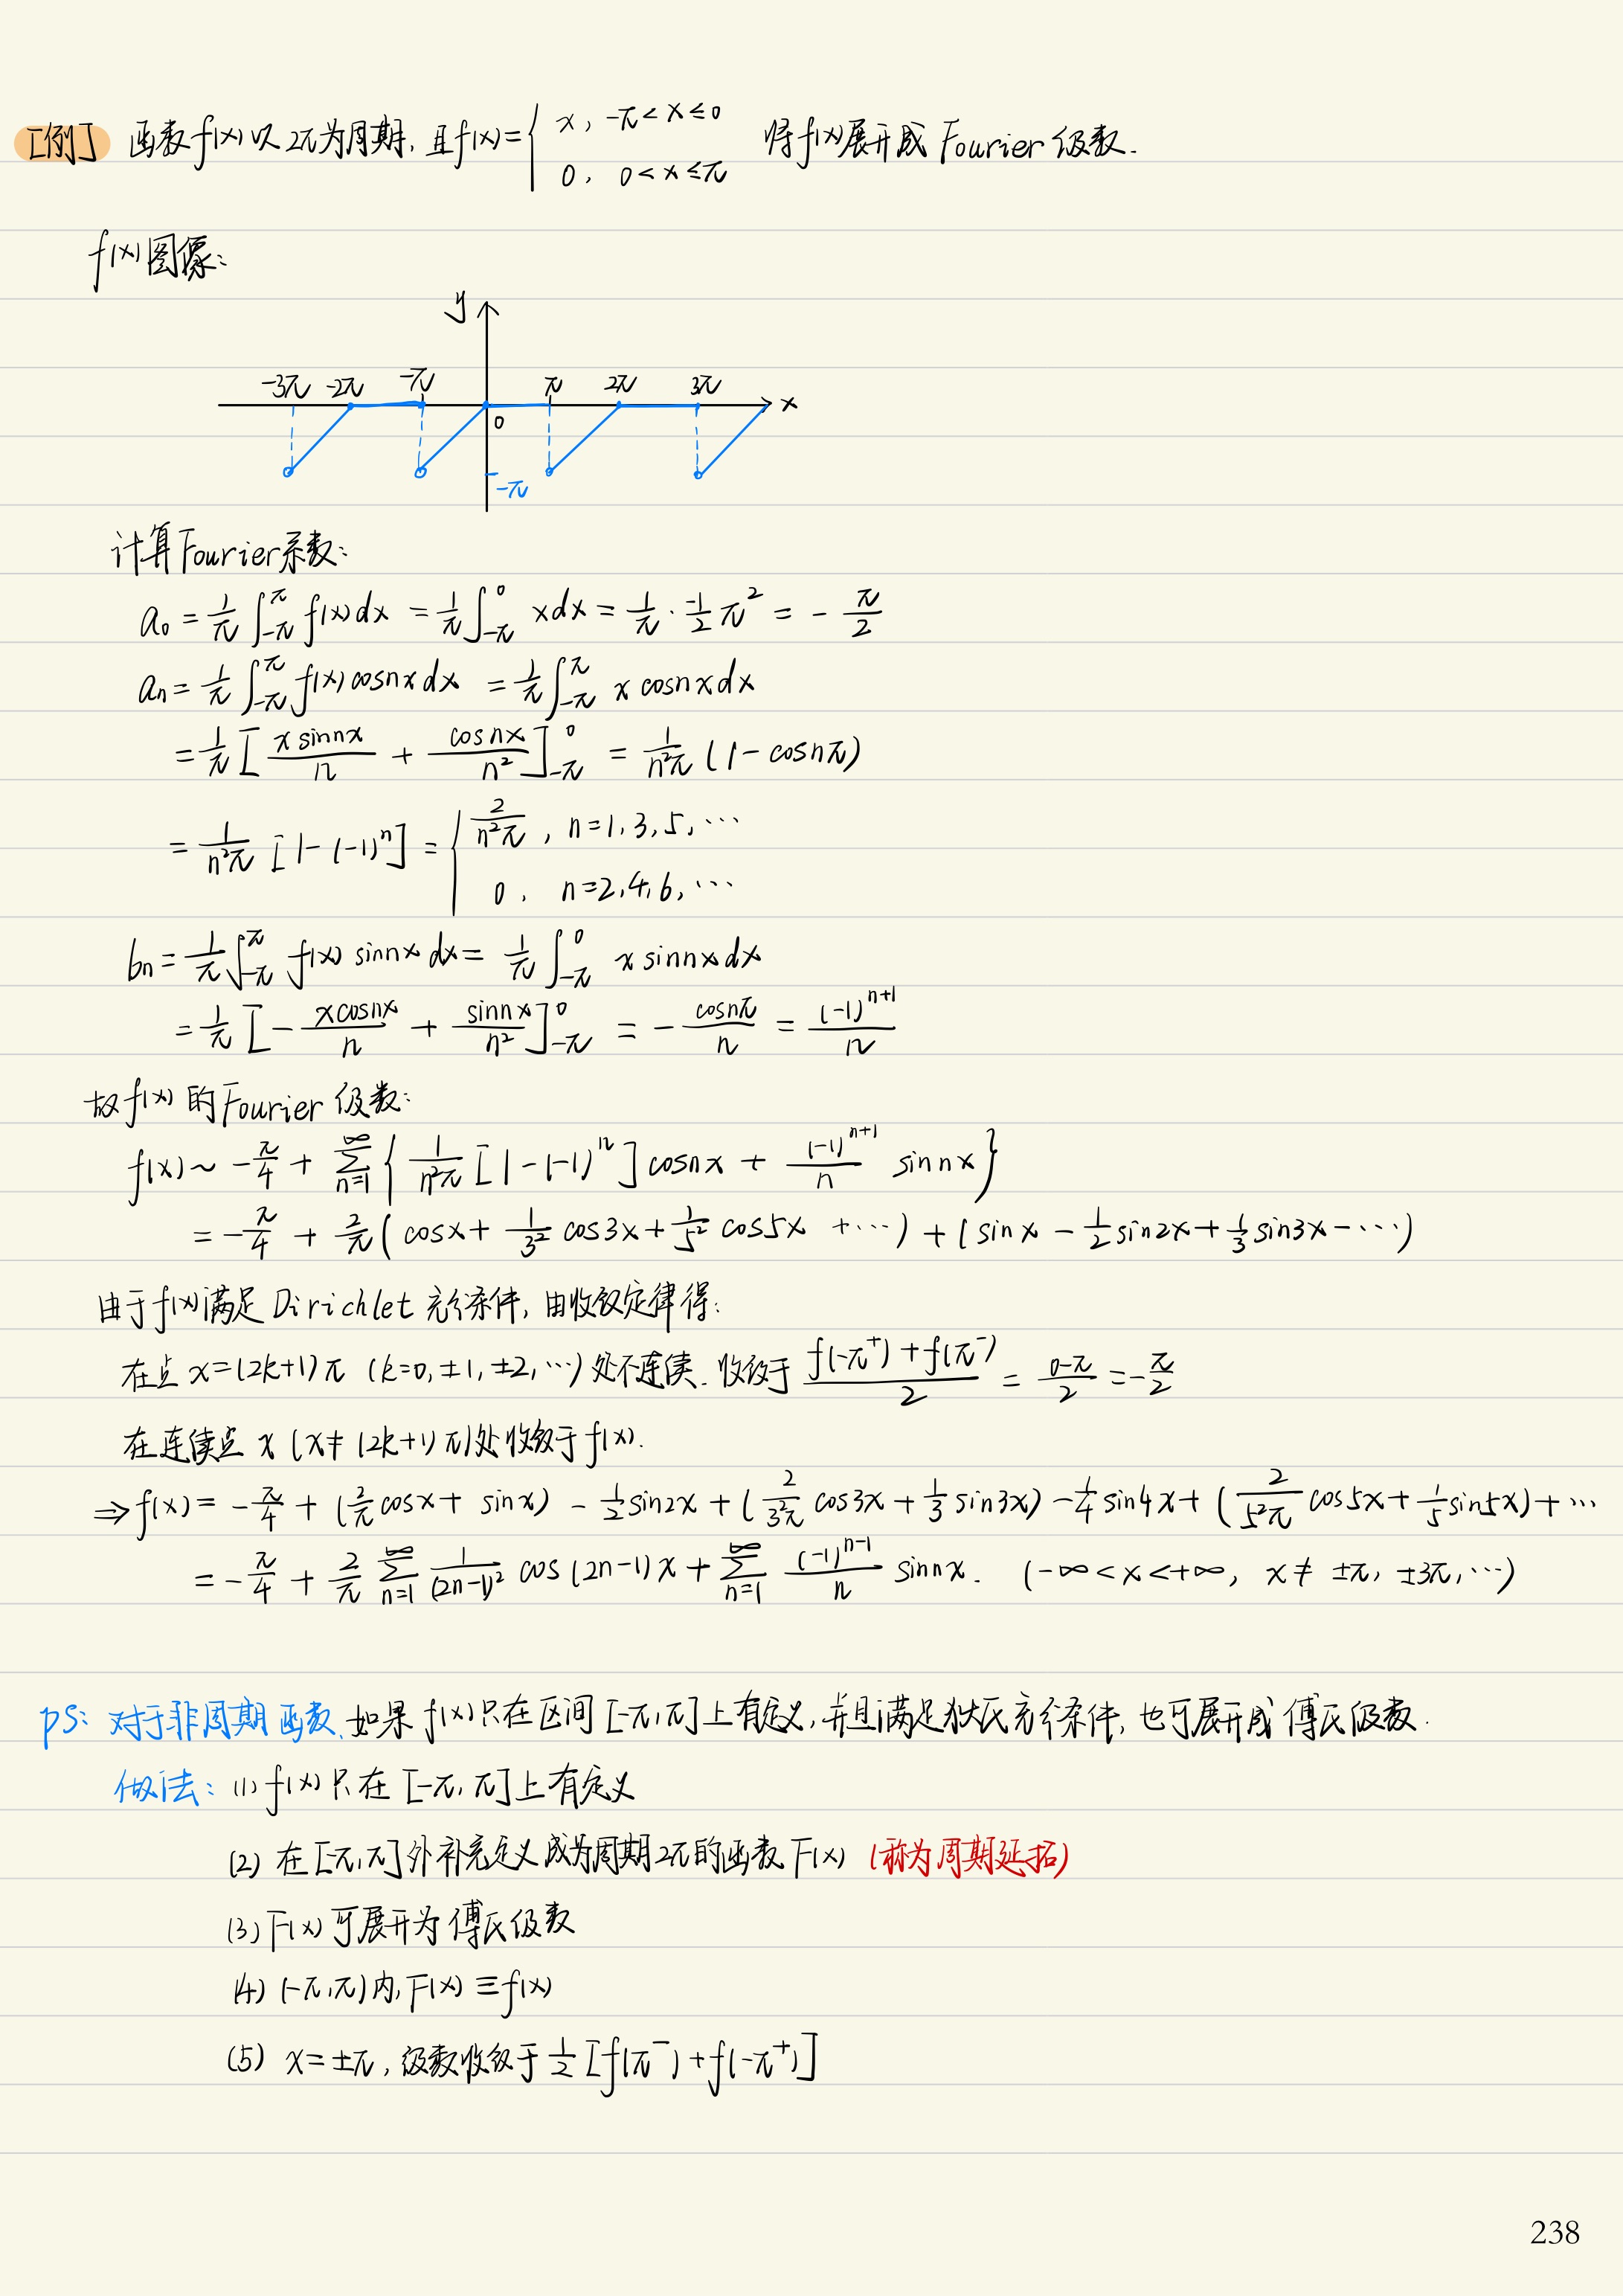 [例] 函数f(x)以2π为周期,且f(x)={ x, -π<x≤0 将f(x)展开成Fourier级数.
0, 0<x≤π
f(x)图像:
y
-3π -2π -π π 2π 3π x
0
-π
计算Fourier系数:
a₀ = 1/π ∫_{-π}^{π} f(x)dx = 1/π ∫_{-π}^{0} xdx = 1/π · -1/2 π² = - π/2
aₙ = 1/π ∫_{-π}^{π} f(x)cosnxdx = 1/π ∫_{-π}^{π} x cosnxdx
= 1/π [ x sinnx/n + cosnx/n² ]_{-π}^{0} = 1/(n²π) (1-cosnπ)
= 1/(n²π) [1-(-1)ⁿ] = { 2/(n²π), n=1,3,5,…
0, n=2,4,6,…
bₙ = 1/π ∫_{-π}^{π} f(x) sinnx dx = 1/π ∫_{-π}^{0} x sinnxdx
= 1/π [ - xcosnx/n + sinnx/n² ]_{-π}^{0} = - cosnπ/n = (-1)^{n+1}/n
故f(x)的Fourier级数:
f(x) ~ -π/4 + Σ_{n=1}^{∞} { 1/(n²π) [1-(-1)ⁿ] cosnx + (-1)^{n+1}/n sinnx }
= -π/4 + 2/π ( cosx + 1/3² cos3x + 1/5² cos5x +…) + (sinx - 1/2 sin2x + 1/3 sin3x -…)
由于f(x)满足Dirichlet充分条件,由收敛定律得:
在点x=(2k+1)π (k=0,±1,±2,…)处不连续.收敛于 (f(-π⁺)+f(π⁻))/2 = (0-π)/2 = -π/2
在连续点x (x≠(2k+1)π)处收敛于f(x).
⇒f(x) = -π/4 + (2/π cosx + sinx) - 1/2 sin2x + (2/(3²π) cos3x + 1/3 sin3x) - 1/4 sin4x + (2/(5²π) cos5x + 1/5 sin5x) + …
= -π/4 + 2/π Σ_{n=1}^{∞} 1/(2n-1)² cos(2n-1)x + Σ_{n=1}^{∞} (-1)^{n-1}/n sinnx. (-∞<x<+∞, x≠±π, ±3π,…)
PS: 对于非周期函数,如果f(x)只在区间[-π,π]上有定义,并且满足狄氏充分条件,也可展开成傅氏级数.
做法: (1) f(x)只在[-π,π]上有定义
(2) 在[-π,π]外补充定义成为周期2π的函数F(x) (称为周期延拓)
(3) F(x)可展开为傅氏级数
(4) (-π,π)内,F(x)≡f(x)
(5) x=±π,级数收敛于 1/2 [f(π⁻)+f(-π⁺)]
238